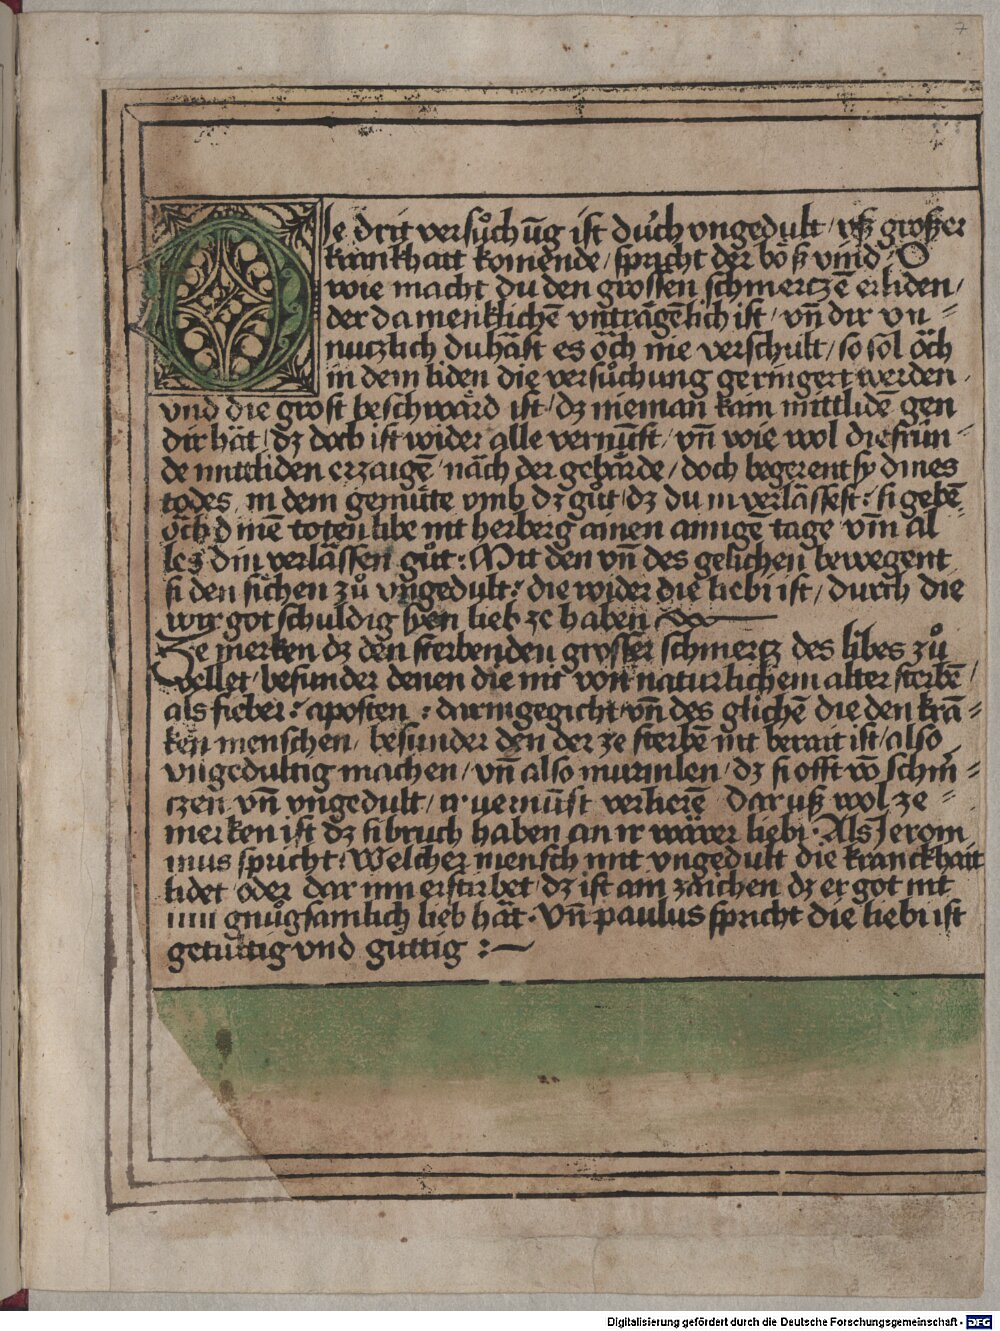 7
Die drit versůchūg ist durch vngedult / vß großer
krankhait komende / spricht der böß vind / O
wie macht du den grossen schmertzē erliden /
der da menklichē vntragēlich ist / vn̄ dir vn =
nutzlich du hast es öch nie verschult / so sol öch
in dem liden die versůchung geringert werden .
vnd die grost beschwärd ist / dz nieman kain mittlidē gen
dir hät / dz doch ist wider alle vernūft / vn̄ wie wol die frün =
de mittliden erzaigē / näch der gebärde / doch begerent sy dines
todes in dem gemüte vmb dz gůt / dz du in verlässest : si gebē
öch dinē toten libe nit herberg ainen ainigē tage vm̄ al
les din verlässen gůt : Mit den vn̄ des gelichen bewegent
si den sichen zů vngedult : die wider die liebi ist / durch die
wir got schuldig syen lieb ze haben
Ze merken dz den sterbenden grosser schmertz des libes zů
vellet / besunder denen die nit von naturlichem alter sterbē /
als fieber : aposten : darmgegicht vn̄ des glichē die den krā =
ken menschen / besunder den der ze sterbē nit berait ist / also
vngedultig machen / vn̄ also murmlen / dz si offt vō schm̄ =
tzen vn̄ vngedult / ir vernūft verlierē dar uß wol ze =
merken ist dz si bruch haben an ir wärer liebi . Als Jeroni
mus spricht : Welcher mensch mit vngedult die kranckhait
lidet / oder dar inn erstirbet / dz ist ain zaichen dz er got nit
inn gnůgsamlich lieb hät . Vn̄ paulus spricht die liebi ist
getultig vnd güttig :
Digitalisierung gefördert durch die Deutsche Forschungsgemeinschaft - DFG